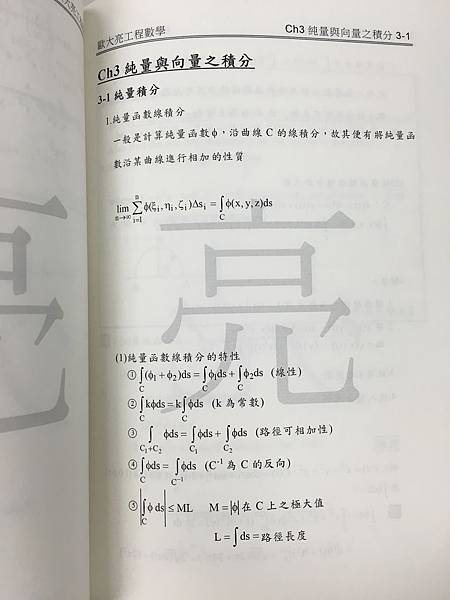 歐大亮工程數學 Ch3 純量與向量之積分 3-1
Ch3 純量與向量之積分
3-1 純量積分
1.純量函數線積分
一般是計算純量函數ϕ，沿曲線 C 的線積分，故其便有將純量函
數沿某曲線進行相加的性質
lim n→∞ ∑ i=1 n ϕ(ξi, ηi, ζi)Δsi = ∫C ϕ(x, y, z)ds
亮
(1)純量函數線積分的特性
①∫C (ϕ1 + ϕ2)ds = ∫C ϕ1ds + ∫C ϕ2ds (線性)
②∫C kϕds = k∫C ϕds (k 為常數)
③ ∫C1+C2 ϕds = ∫C1 ϕds + ∫C2 ϕds (路徑可相加性)
④∫C ϕds = ∫C-1 ϕds (C-1 為 C 的反向)
⑤|∫C ϕ ds| ≤ ML M = |ϕ|在 C 上之極大值
L = ∫C ds = 路徑長度